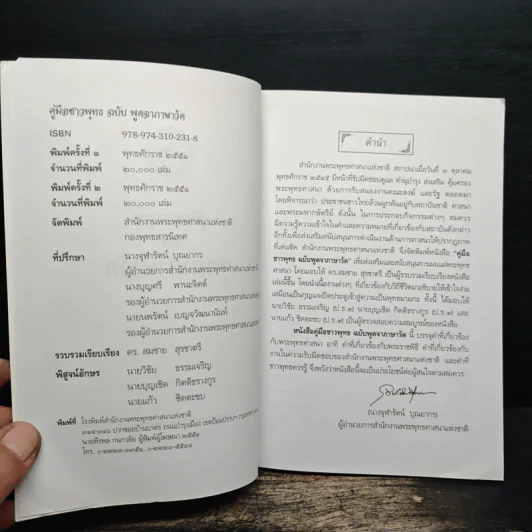 คู่มือชาวพุทธ ฉบับ พูดจาภาษาวัด
ISBN 978-974-310-231-8
พิมพ์ครั้งที่ ๑ พุทธศักราช ๒๕๕๑
จำนวนที่พิมพ์ ๒๐,๐๐๐ เล่ม
พิมพ์ครั้งที่ ๒ พุทธศักราช ๒๕๕๑
จำนวนที่พิมพ์ ๒๐,๐๐๐ เล่ม
จัดพิมพ์ สำนักงานพระพุทธศาสนาแห่งชาติ
กองพุทธสารนิเทศ
ที่ปรึกษา นางจุฬารัตน์ บุณยากร
ผู้อำนวยการสำนักงานพระพุทธศาสนาแห่งชาติ
นางบุญศรี พานะจิตต์
รองผู้อำนวยการสำนักงานพระพุทธศาสนาแห่งชาติ
นายนพรัตน์ เบญจวัฒนานันท์
รองผู้อำนวยการสำนักงานพระพุทธศาสนาแห่งชาติ
รวบรวมเรียบเรียง ดร. สมชาย สุรชาตรี
พิสูจน์อักษร นายวิชัย ธรรมเจริญ
นายบุญเชิด กิตติธรางกูร
นายแก้ว ชิดตะขบ
พิมพ์ที่ โรงพิมพ์สำนักงานพระพุทธศาสนาแห่งชาติ
คำนำ
สำนักงานพระพุทธศาสนาแห่งชาติ สถาปนาเมื่อวันที่ ๓ ตุลาคม
พุทธศักราช ๒๕๔๕ มีหน้าที่รับผิดชอบดูแล ทำนุบำรุง ส่งเสริม คุ้มครอง
พระพุทธศาสนา ด้วยการรับสนองงานคณะสงฆ์ และรัฐ ตลอดมา
โดยพิจารณาว่า ประชาชนชาวไทยล้วนผูกพันอยู่กับสถาบันชาติ ศาสนา
และพระมหากษัตริย์ ดังนั้น ในการประกอบกิจกรรมต่างๆ สมควร
มีความรู้ความเข้าใจในคำและความหมายที่เกี่ยวข้องกับสถาบันดังกล่าว
อีกทั้งเพื่อส่งเสริมสนับสนุนการดำเนินงานด้านการศาสนาให้ปรากฏภาพ
ที่เด่นชัด สำนักงานพระพุทธศาสนาแห่งชาติ จึงจัดพิมพ์หนังสือ "คู่มือ
ชาวพุทธ ฉบับพูดจาภาษาวัด" เพื่อส่งเสริมและสนับสนุนการเผยแผ่พระพุทธ
ศาสนา โดยมอบให้ ดร.สมชาย สุรชาตรี เป็นผู้รวบรวมเรียบเรียงหนังสือ
เล่มนี้ขึ้น โดยนำเรื่องต่างๆ ที่เกี่ยวข้องกับวิถีชีวิตมาอธิบายให้เข้าใจง่าย
เสมือนเป็นกุญแจเปิดประตูเข้าสู่ความเป็นพุทธมามกะ ทั้งนี้ ได้มอบให้
นายวิชัย ธรรมเจริญ (ป.ธ.๙) นายบุญเชิด กิตติธรางกูร (ป.ธ.๙) และ
นายแก้ว ชิดตะขบ (ป.ธ.๙) เป็นผู้ตรวจสอบความสมบูรณ์ของหนังสือ
หนังสือคู่มือชาวพุทธ ฉบับพูดจาภาษาวัด นี้ บรรจุคำที่เกี่ยวข้อง
กับพระพุทธศาสนา อาทิ คำที่เกี่ยวข้องกับพระราชพิธี คำที่เกี่ยวข้องกับ
งานในความรับผิดชอบของสำนักงานพระพุทธศาสนาแห่งชาติ และคำที่
ชาวพุทธควรรู้ จึงหวังว่าหนังสือนี้จะเป็นประโยชน์ต่อผู้สนใจตามสมควร
(นางจุฬารัตน์ บุณยากร)
ผู้อำนวยการสำนักงานพระพุทธศาสนาแห่งชาติ